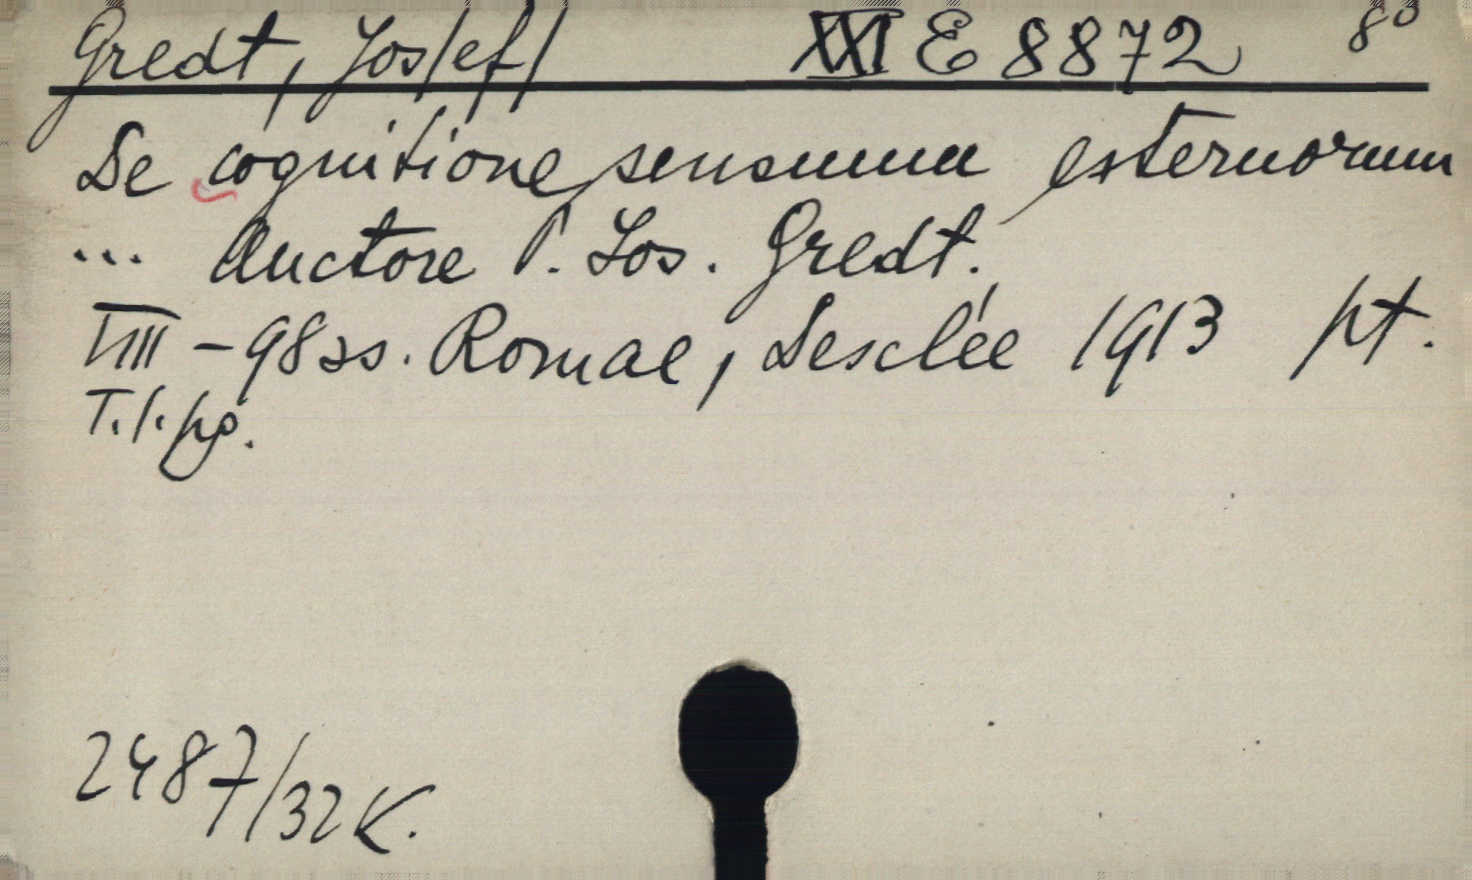 Gredt, Jos/ef/ XXI E 8872 8°
De cognitione sensuum externorum
... Auctore P. Jos. Gredt.
VIII - 98 ss. Romae, Desclée 1913 pt.
T. l. pg.
2487/32 K.